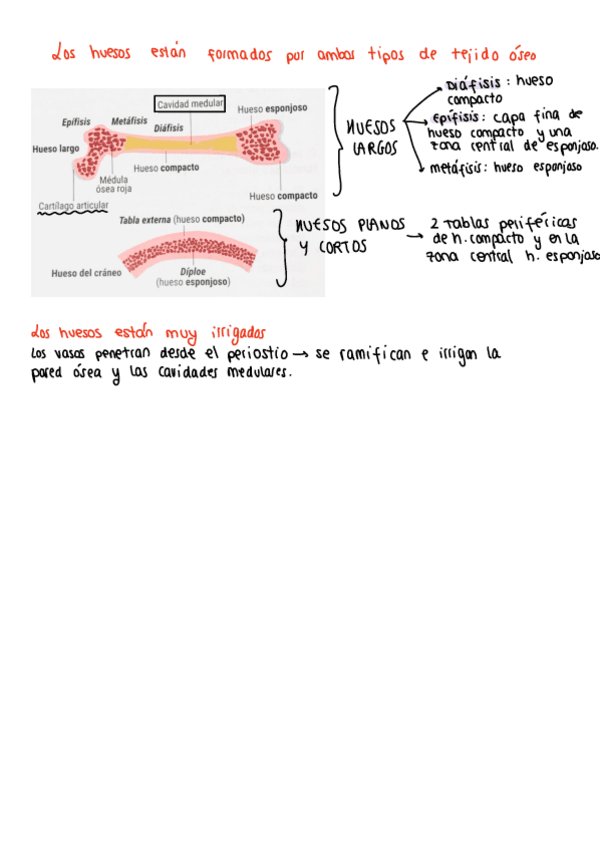 Los huesos están formados por ambos tipos de tejido óseo
Cavidad medular
Hueso esponjoso
Epífisis
Metáfisis
Diáfisis
Hueso largo
Hueso compacto
Médula
ósea roja
Hueso compacto
Cartílago articular
HUESOS
LARGOS
Diáfisis: hueso
compacto
Epífisis: capa fina de
hueso compacto y una
zona central de esponjoso.
metáfisis: hueso esponjoso
Tabla externa (hueso compacto)
Hueso del cráneo
Díploe
(hueso esponjoso)
HUESOS PLANOS
Y CORTOS
→ 2 Tablas periféricas
de h. compacto y en la
zona central h. esponjoso
Los huesos están muy irrigados
Los vasos penetran desde el periostio → se ramifican e irrigan la
pared ósea y las cavidades medulares.